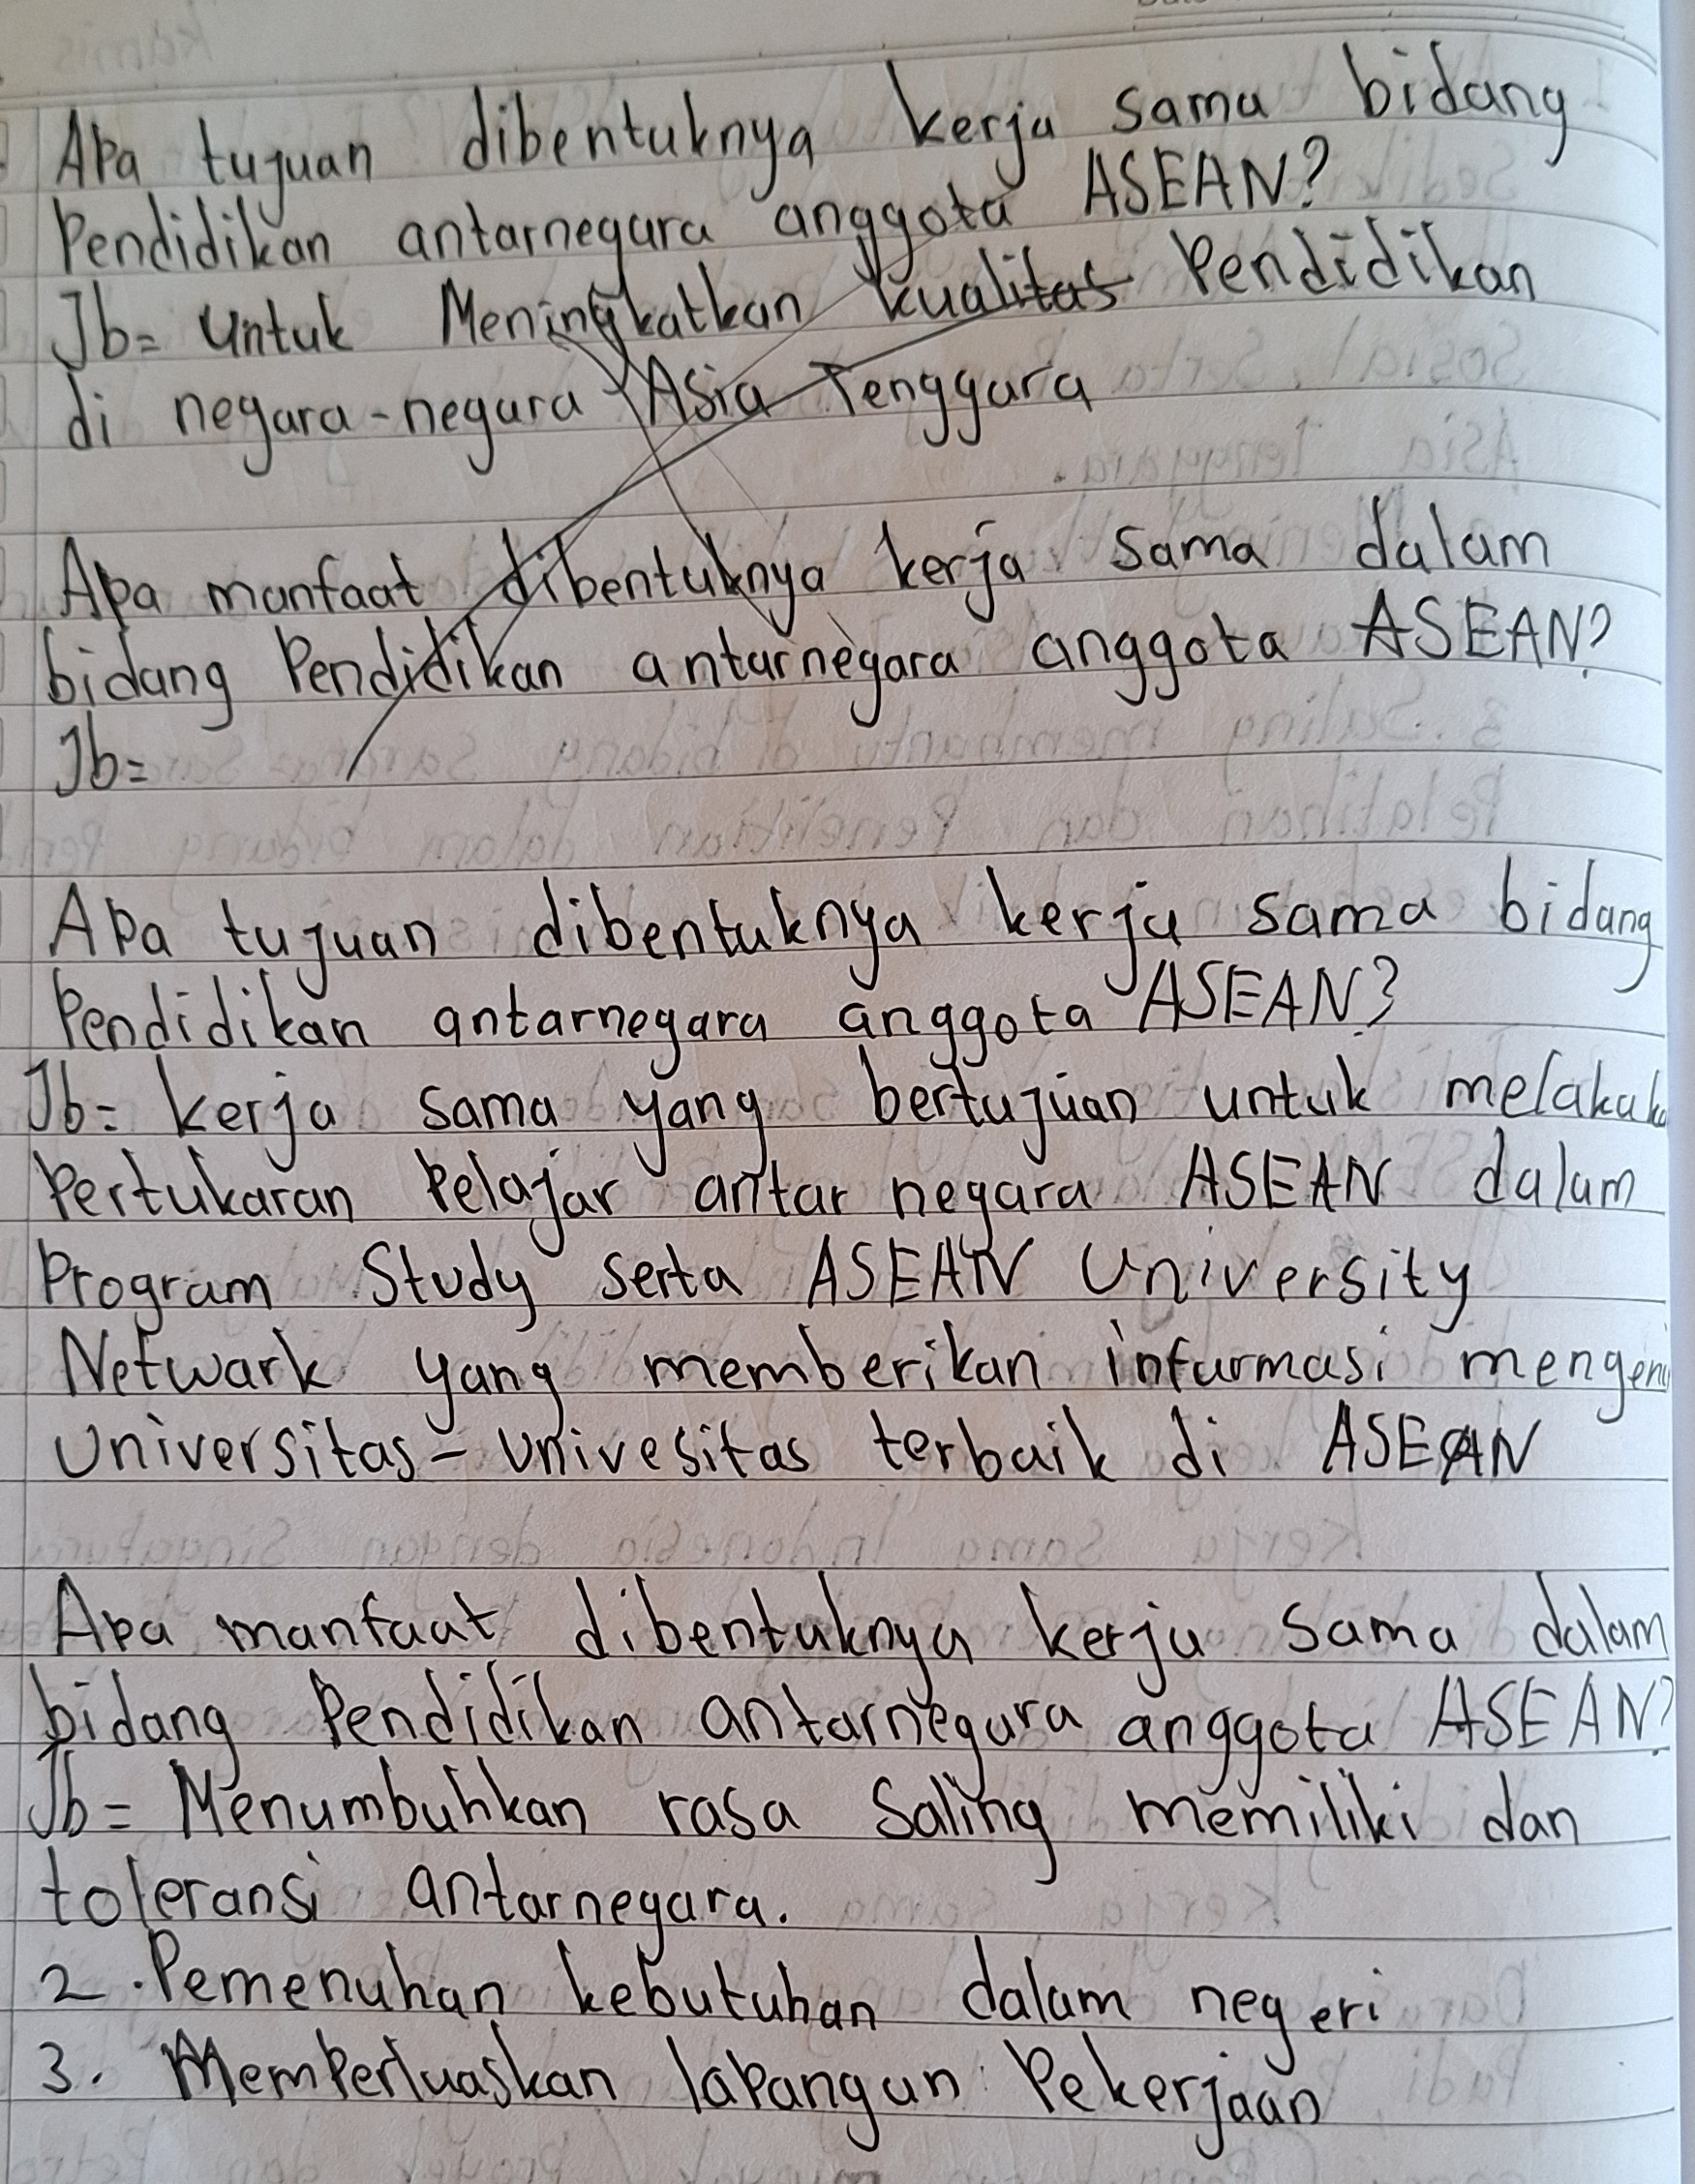 Apa tujuan dibentuknya kerja sama bidang
Pendidikan antarnegara anggota ASEAN?
Jb= Untuk Meningkatkan kualitas Pendidikan
di negara-negara Asia Tenggara
Apa manfaat dibentuknya kerja sama dalam
bidang Pendidikan antarnegara anggota ASEAN?
Jb=
Apa tujuan dibentuknya kerja sama bidang
Pendidikan antarnegara anggota ASEAN?
Jb= kerja sama yang bertujuan untuk
Pertukaran Pelajar antar negara ASEAN dalam
Program Study serta ASEAN University
Netwark yang memberikan infurmasi
Universitas-univesitas terbaik di ASEAN
Apa manfaat dibentuknya kerja sama dalam
bidang Pendidikan antarnegara anggota ASEAN?
Jb= Menumbuhkan rasa Saling memiliki dan
toleransi antarnegara.
2. Pemenuhan kebutuhan dalam negeri
3. Memperluaskan lapangan Pekerjaan